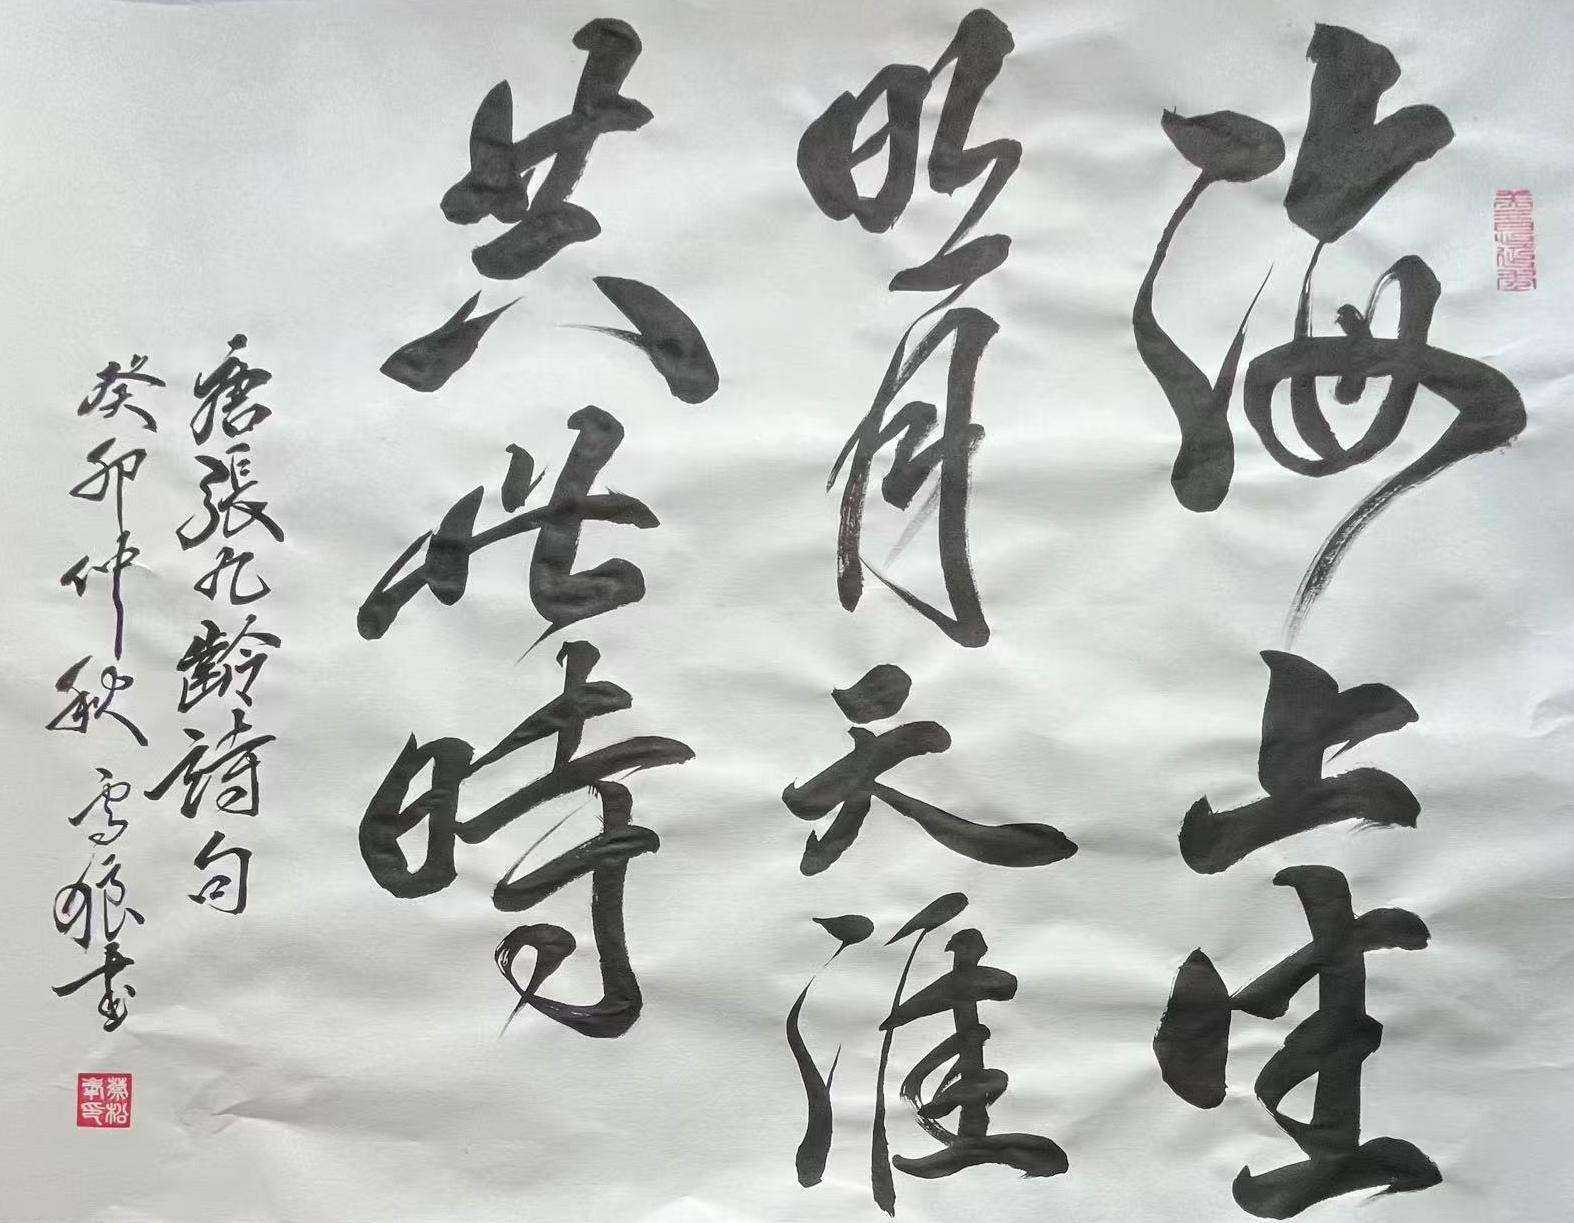 海上生
明月天涯
共此时
唐張九齡詩句
癸卯仲秋雪狼書